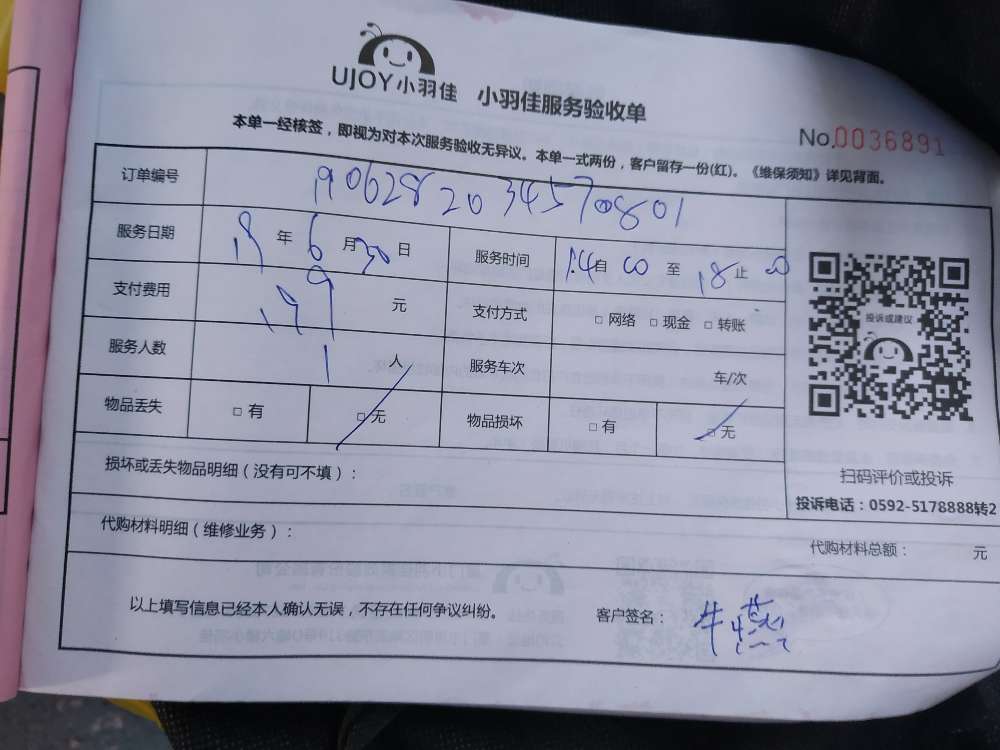 UJOY小羽佳 小羽佳服务验收单
No.0036891
本单一经核签，即视为对本次服务验收无异议。本单一式两份，客户留存一份(红)。《维保须知》详见背面。
订单编号 19062820345700801
服务日期 19 年 6 月 30 日 服务时间 14 自 00 至 18 止 00
支付费用 199 元 支付方式 □ 网络 □ 现金 □ 转账
服务人数 1 人 服务车次 车/次
物品丢失 □ 有 □ 无 物品损坏 □ 有 □ 无
投诉或建议
扫码评价或投诉
投诉电话：0592-5178888转2
损坏或丢失物品明细（没有可不填）：
代购材料明细（维修业务）： 代购材料总额： 元
以上填写信息已经本人确认无误，不存在任何争议纠纷。 客户签名： 牛燕